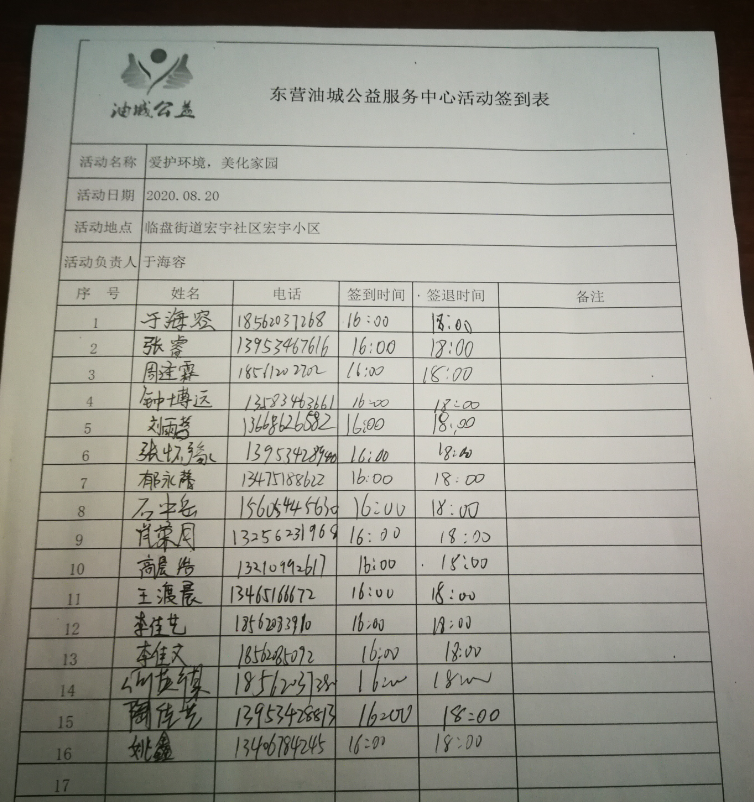 油城公益
东营油城公益服务中心活动签到表
活动名称 爱护环境，美化家园
活动日期 2020.08.20
活动地点 临盘街道宏宇社区宏宇小区
活动负责人 于海容
序 号 姓名 电话 签到时间 签退时间 备注
1 于海容 18562037268 16:00 18:00
2 张睿 13953467616 16:00 18:00
3 周建霖 18561202702 16:00 18:00
4 钟博远 13583463661 16:00 18:00
5 刘雨 13668626582 16:00 18:00
6 张怀 16:00 18:00
7 郁永馨 13475188622 16:00 18:00
8 石中岳 15605445630 16:00 18:00
9 肖荣 13256231968 16:00 18:00
10 高晨 13210992617 16:00 18:00
11 王浚晨 13465166672 16:00 18:00
12 李佳艺 16:00 18:00
13 李佳文 16:00 18:00
14 16:00 18:00
15 陶佳艺 13953428813 16:00 18:00
16 姚鑫 13406784245 16:00 18:00
17